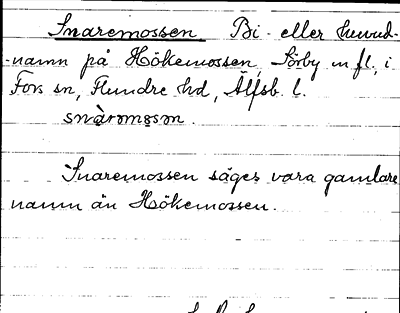 Snaremossen Bi- eller huvud-
-namn på Hökemossen, Sörby m fl, i
Fors sn, Flundre hd, Älfsb. l.
snàrəmosən.
Snaremossen säges vara gamlare
namn än Hökemossen.